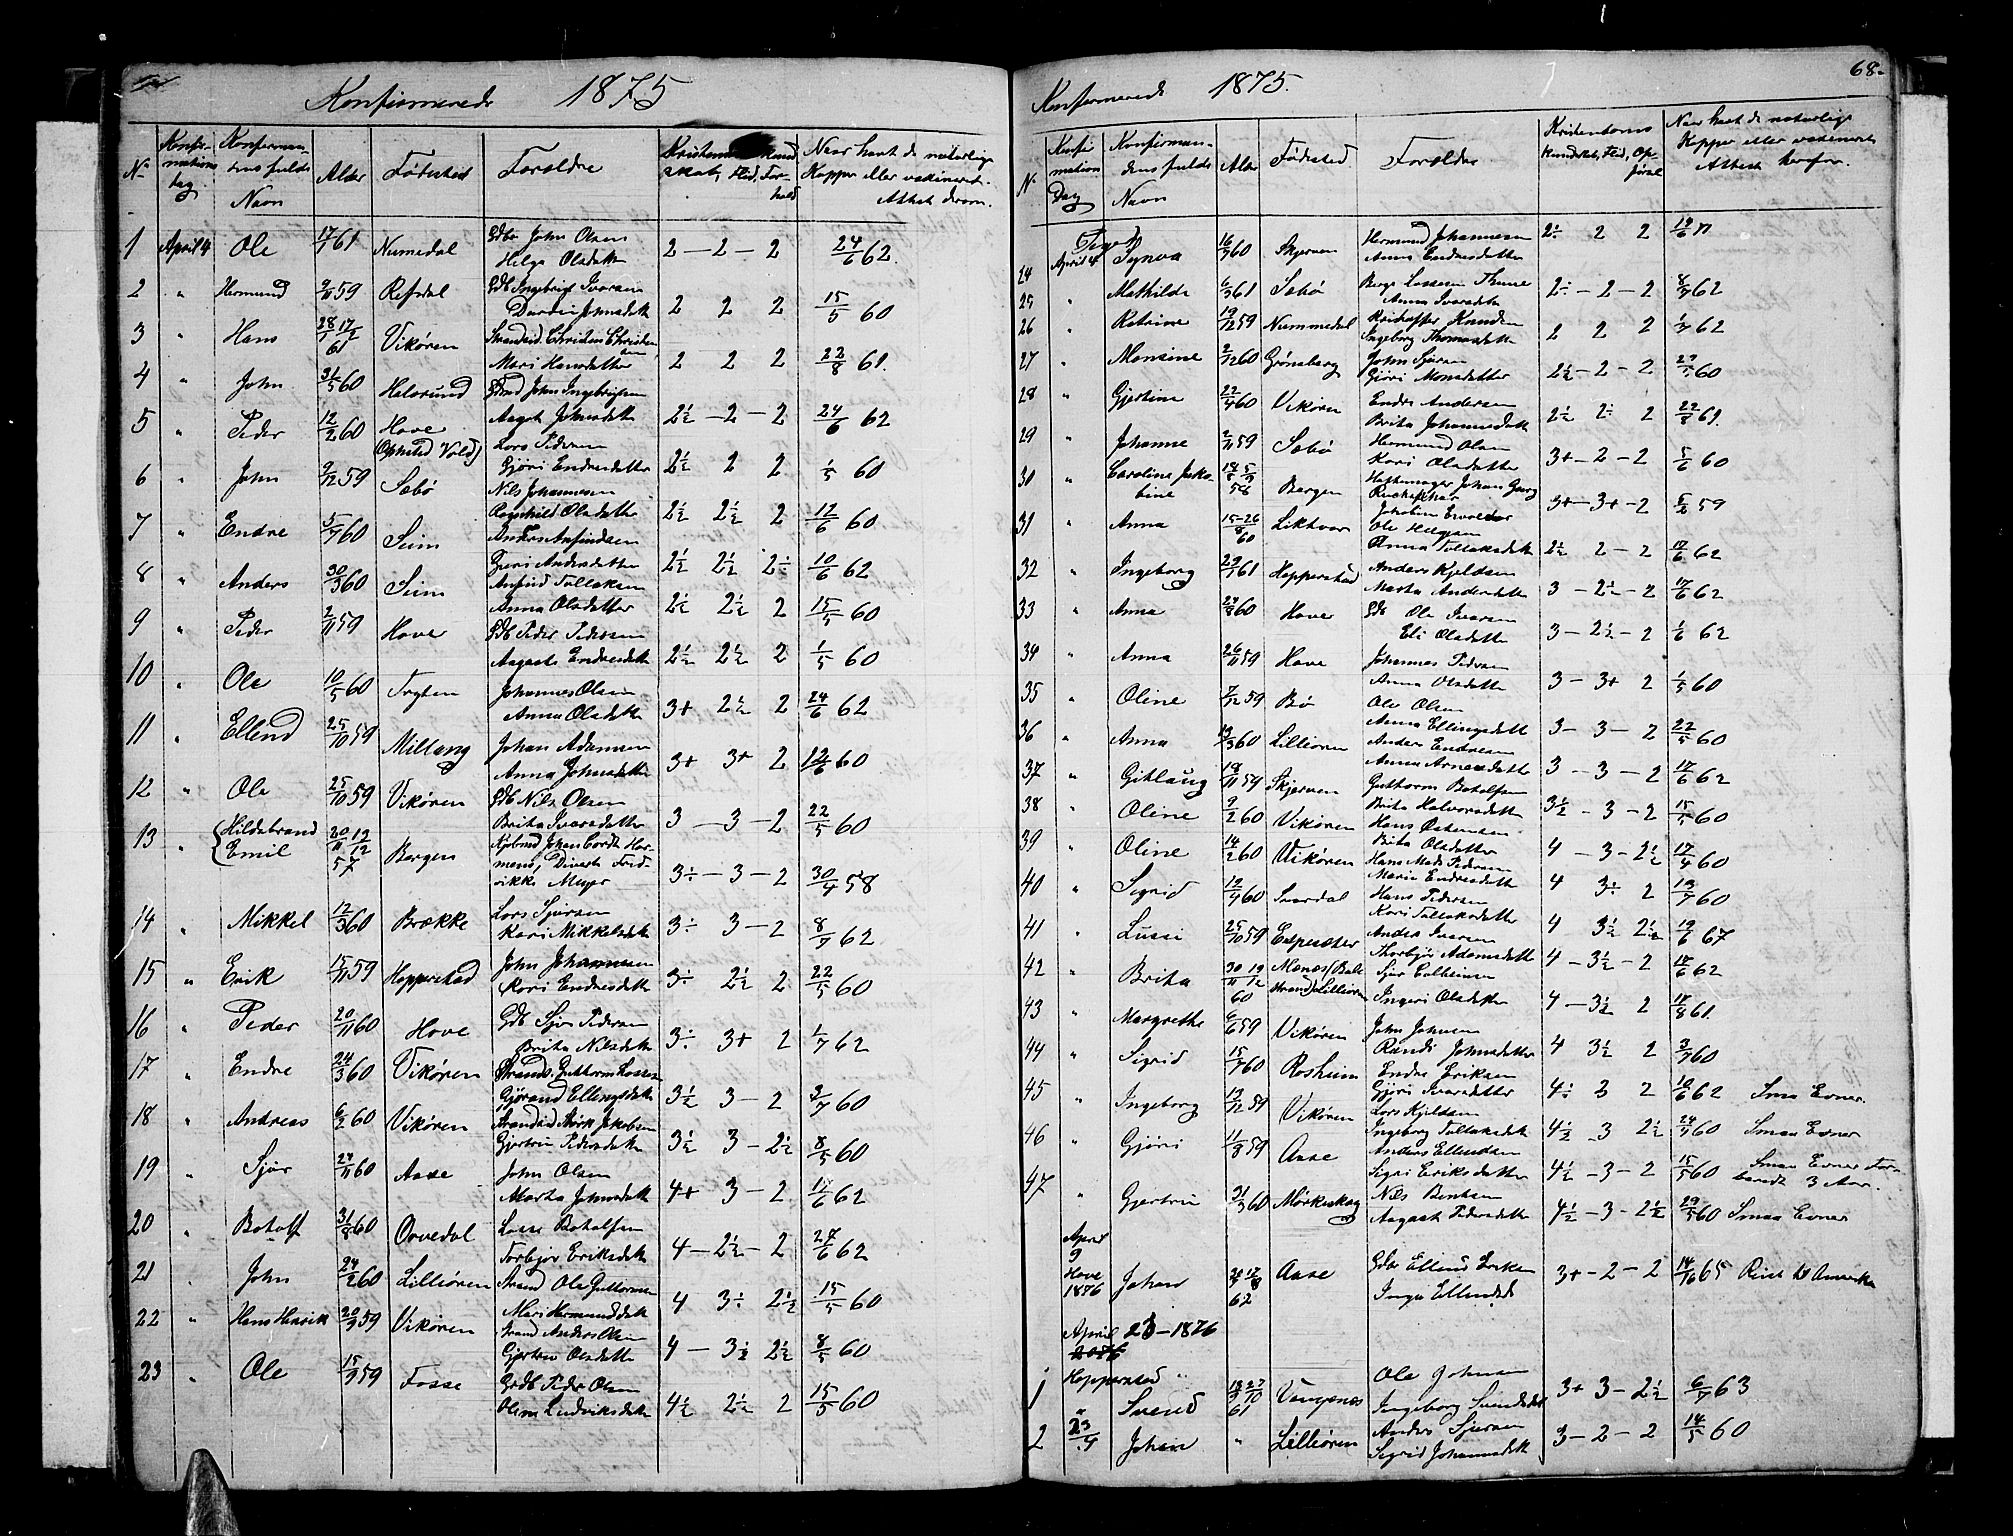 Konfirmerede 1875
No
Konfir-
mations
dag
Konfirman-
dens fulde
Navn
Alder
Fødested
Forældre
Naar havt de naturlige
Kopper eller vakineret.
Attest derom.
1 April 4 Ole 17/1 61 Numedal Gdbr John Olsen 2 – 2 – 2 24/6 62.
Helga Olsdatter
2 " Hermund 2/11 59 Refsdal Gdb Ingebrigt Ivarsen 2 2 2 15/5 60
3 " Hans 28/7 17/2 61 Vikøren Strandsid. Christen Christen
sen
Mari Hansdatter 2 2 2 22/8 61.
4 " John 31/5 60 Halsrund John Ingebrigtsen
Aagot Johnsdatter 2½ – 2 – 2 24/6 62
5 " Peder 12/2 60 Hove Lars Pedersen
(Opfosted Vold) Gjøri Endresdatter 2½ 2 2 1/5 60
6 " John 2/12 59 Sæbø Nils Johannesen
Ragnhild Olsdatter 2½ 2½ 2 12/6 60
7 " Endre 5/7 60 Seim Anders Anfindsen
Andersdatter 2½ 2½ 2÷ 10/6 62
8 " Anders 30/3 60 Seim Anfind Tollaksen
Anna Olsdatter 2½ 2½ 2 15/5 60
9 " Peder 2/11 59 Hove Gdb Peder Pedersen
Aagaata Endresdatter 2½ 2½ 2 1/5 60
10 " Ole 10/5 60 Tryten Johannes Olsen
Anna Olsdatter 3+ 2½ 2 24/6 62
11 " Ellend 25/10 59 Millang Johan Adamsen
Anna Johnsdatter 3+ 3+ 2 12/6 60
12 " Ole 25/10 59 Vikøren Gdb Nils Olsen
Brita Ivarsdatter 3 – 3 – 2 22/5 60
13 " Hildebrand 20/11 12/12 57 Bergen Kjøbmd Johan Cordt Har-
Emil mens, Diverta Fred-
rikke Meyer 3÷ – 3 – 2 30/4 58
14 " Mikkel 12/3 60 Brække Lars Sjursen
Kari Mikkelsdatter 3÷ 3 – 2 8/7 62
15 " Erik 15/11 59 Hopperstad John Johannesen
Kari Endresdatter 3÷ 2½ 2 22/5 60
16 " Peder 20/11 60 Hove Gdb Sjur Pedersen
Brita Nilsdatter 3÷ 3+ 2 1/7 62
17 " Endre 24/3 60 Vikøren Strands. Guttorm Lassen
Gjørand Ellingsdatter 3½ 3 – 2 3/7 60
18 " Andreas 6/2 60 Vikøren Strandsid Mørk Jakobsen
Gjertrui Pedersdatter 3½ 3 – 2½ 8/5 60
19 " Sjur 24/11 60 Aase John Olsen
Marta Johnsdatter 4+ 3 – 2 17/6 62
20 " Botolf 31/8 60 Orvedal Lasse Botolfsen
Torbjør Eriksdatter 4 – 2½ – 2 27/6 62
21 " John 24/2 60 Lilliøren Strand Ole Guttormsen
Mari Hermundsdatter 4 3÷ 2½ 15/5 60
22 " Hans Henrik 20/9 59 Vikøren Strand Anders Olsen
Gjertrui Olsdatter 4 – 3½ 2½ 8/5 60
23 " Ole 15/9 59 Fosse Grdb Peder Olsen
Oline Ludviksdatter 4½ 2½ 2 15/5 60
Konfirmerede 1875.
68.
No
Konfir
mations
Dag
Konfirman-
dens fulde
Navn
Alder
Fødested
Forældre
Kristendoms
Kundskab, Flid, Op-
førsel
Naar havt de naturlige
Kopper eller vakineret
Attest herfor.
Piger
24 April 4 Synva 16/9 60 Skjerven Hermund Johannesen 2÷ 2 2
Anna Endresdatter
25 " Mathilde 6/3 61 Sæbø Berge Lassesen Thune 2÷ – 2 – 2 8/7 62
Anna Ivarsdatter
26 " Katrine 19/12 59 Nummedal Kristoffer Knudsen 2 2 2 1/7 62
Ingeborg Thomasdatter
27 " Monsine 2/12 60 Grønsberg John Sjursen
Gjøri Monsdatter 2½ – 2 – 2 60
28 " Gjertine 22/4 60 Vikøren Endre Andersen
Brita Johannesdatter 2½ 2÷ 2 22/8 61.
29 " Johanne 2/11 59 Sæbø Hermund Olsen
Kari Olsdatter 3+ – 2 – 2 5/6 60
30 " Caroline Jako- 58 Bergen Hattemager Johan Georg
bine 3+ – 3+ – 2 59
31 " Anna 15-26/8 60 Liktvor Ole Helgesen
Anna Tollaksdatter 2½ 2 – 2 17/6 62
32 " Ingeborg 29/7 61 Hopperstad Anders Kjeldsen
Marta Andersdatter 3 – 2½ – 2 17/6 62
33 " Anna 27/8 60 Hove Gdb Ole Ivarsen
Eli Olsdatter 3 – 2½ – 2 1/6 62
34 " Anna 26/11 59 Hove Johannes Pedersen
Anna Olsdatter 3 – 3+ 2 1/5 60
35 " Oline 7/12 59 Bø Ole Olsen
Anna Ellingsdatter 3 – 3 – 2 22/5 60
36 " Anna 13/3 60 Lilliøren Anders Endresen
Anna Arnesdatter 3 – 3 – 2 17/6 62
37 " Gitlaug 18/11 59 Skjerven Guttorm Botolfsen
Brita Halvorsdatter 3½ – 3 – 2 15/5 60
38 " Oline 9/2 60 Vikøren Hans Østensen
Brita Olsdatter 4 – 3 – 2½ 17/4 60
39 " Oline 14/2 60 Vikøren Hans Mads Pedersen
Marie Endresdatter 4 3÷ 2 13/7 60
40 " Sigrid 12/4 60 Svardal Hans Pedersen
Kari Tollaksdatter 4 3½ 2½ 19/6 67
41 " Lussi 25/10 59 Espesæter Anders Ivarsen
Thorbjør Adamsdatter 4 – 3½ – 2 18/6 62
42 " Brita 30/11 19/12 60 Menæs (Bale
strand) Lilliøren Ingeri Olsdatter 4 – 3½ 2 18/8 61.
43 " Margrethe 6/6 59 Vikøren John Johnsen
Randi Johnsdatter 4 3½ 2 3/7 60
44 " Sigrid 15/7 60 Rosheim Endre Eriksen
Gjøri Ivarsdatter 4÷ 3 2 10/6 62 Smaa Evner.
45 " Ingeborg 12/12 59 Vikøren Lars Kjeldsen
Ingeborg Tollaksdatter 4½ – 3 2½ 24/7 60 Smaa Evner
46 " Gjøri 11/8 59 Aase Anders Ellendsen
Sigri Eriksdatter 4½ – 3 – 2 15/5 60 Smaa Evner For-
beredt 3 Aar.
47 " Gjertrui 31/3 60 Mørkeskog Nils Bentsen
Aagaat Pedersdatter 4½ – 3 – 2½ 29/5 60 Smaa Evner
April
9
Hove
1876 Johan 62 Aase Gdbr Ellend Eriksen 3+ – 2 – 2 65 Reist til Amerika
Inga Ellendsd
April 23 – 1876
Hopperstad
1 " Svend 61 Vangsnes Ole Johnsen 3+ 3 – 2½ 6/7 63
Ingeborg Svendsdatter
2 23/4 Johan " Lilliøren Anders Sjursen 3 – 2 – 2 14/5 60
Sigrid Johannesdatter